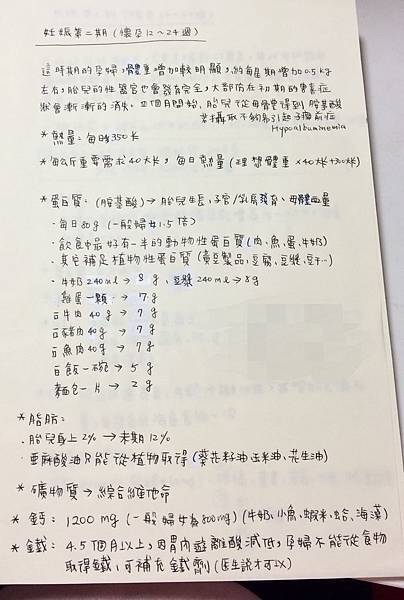 妊娠第二期 (懷孕12～24週)
這時期的孕婦,體重增加較明顯,約每星期增加0.5kg
左右,胎兒的性器官也會發育完全,大部份在初期的害喜症
狀會漸漸的消失。四個月開始,胎兒從母體需得到胺基酸
若攝取不夠易引起子癇前症
Hypoalbuminemia
* 熱量:每日多350卡
* 每公斤重要需求40大卡,每日熱量(理想體重×40大卡+300卡)
* 蛋白質:(胺基酸)→胎兒生長、子宮/乳房發育、母體血量
·每日80g (一般婦女1.5倍)
·飲食中最好有一半的動物性蛋白質(肉、魚、蛋、牛奶)
·其它補足植物性蛋白質(黃豆製品、豆腐、豆漿、豆干…)
·牛奶240ml → 8g、豆漿240ml → 8g
雞蛋一顆 → 7g
牛肉40g → 7g
豬肉40g → 7g
魚肉40g → 7g
飯一碗 → 5g
麵包一片 → 2g
* 脂肪:
·胎兒身上2% → 末期12%
·亞麻酸油只能從植物取得(葵花籽油、玉米油、花生油)
* 礦物質→綜合維他命
* 鈣:1200mg (一般婦女為800mg) (牛奶、小魚、蝦米、蛤、海藻)
* 鐵:4.5個月以上,因胃內游離酸減低,孕婦不能從食物
取得鐵,可補充鐵劑(醫生說才可以)